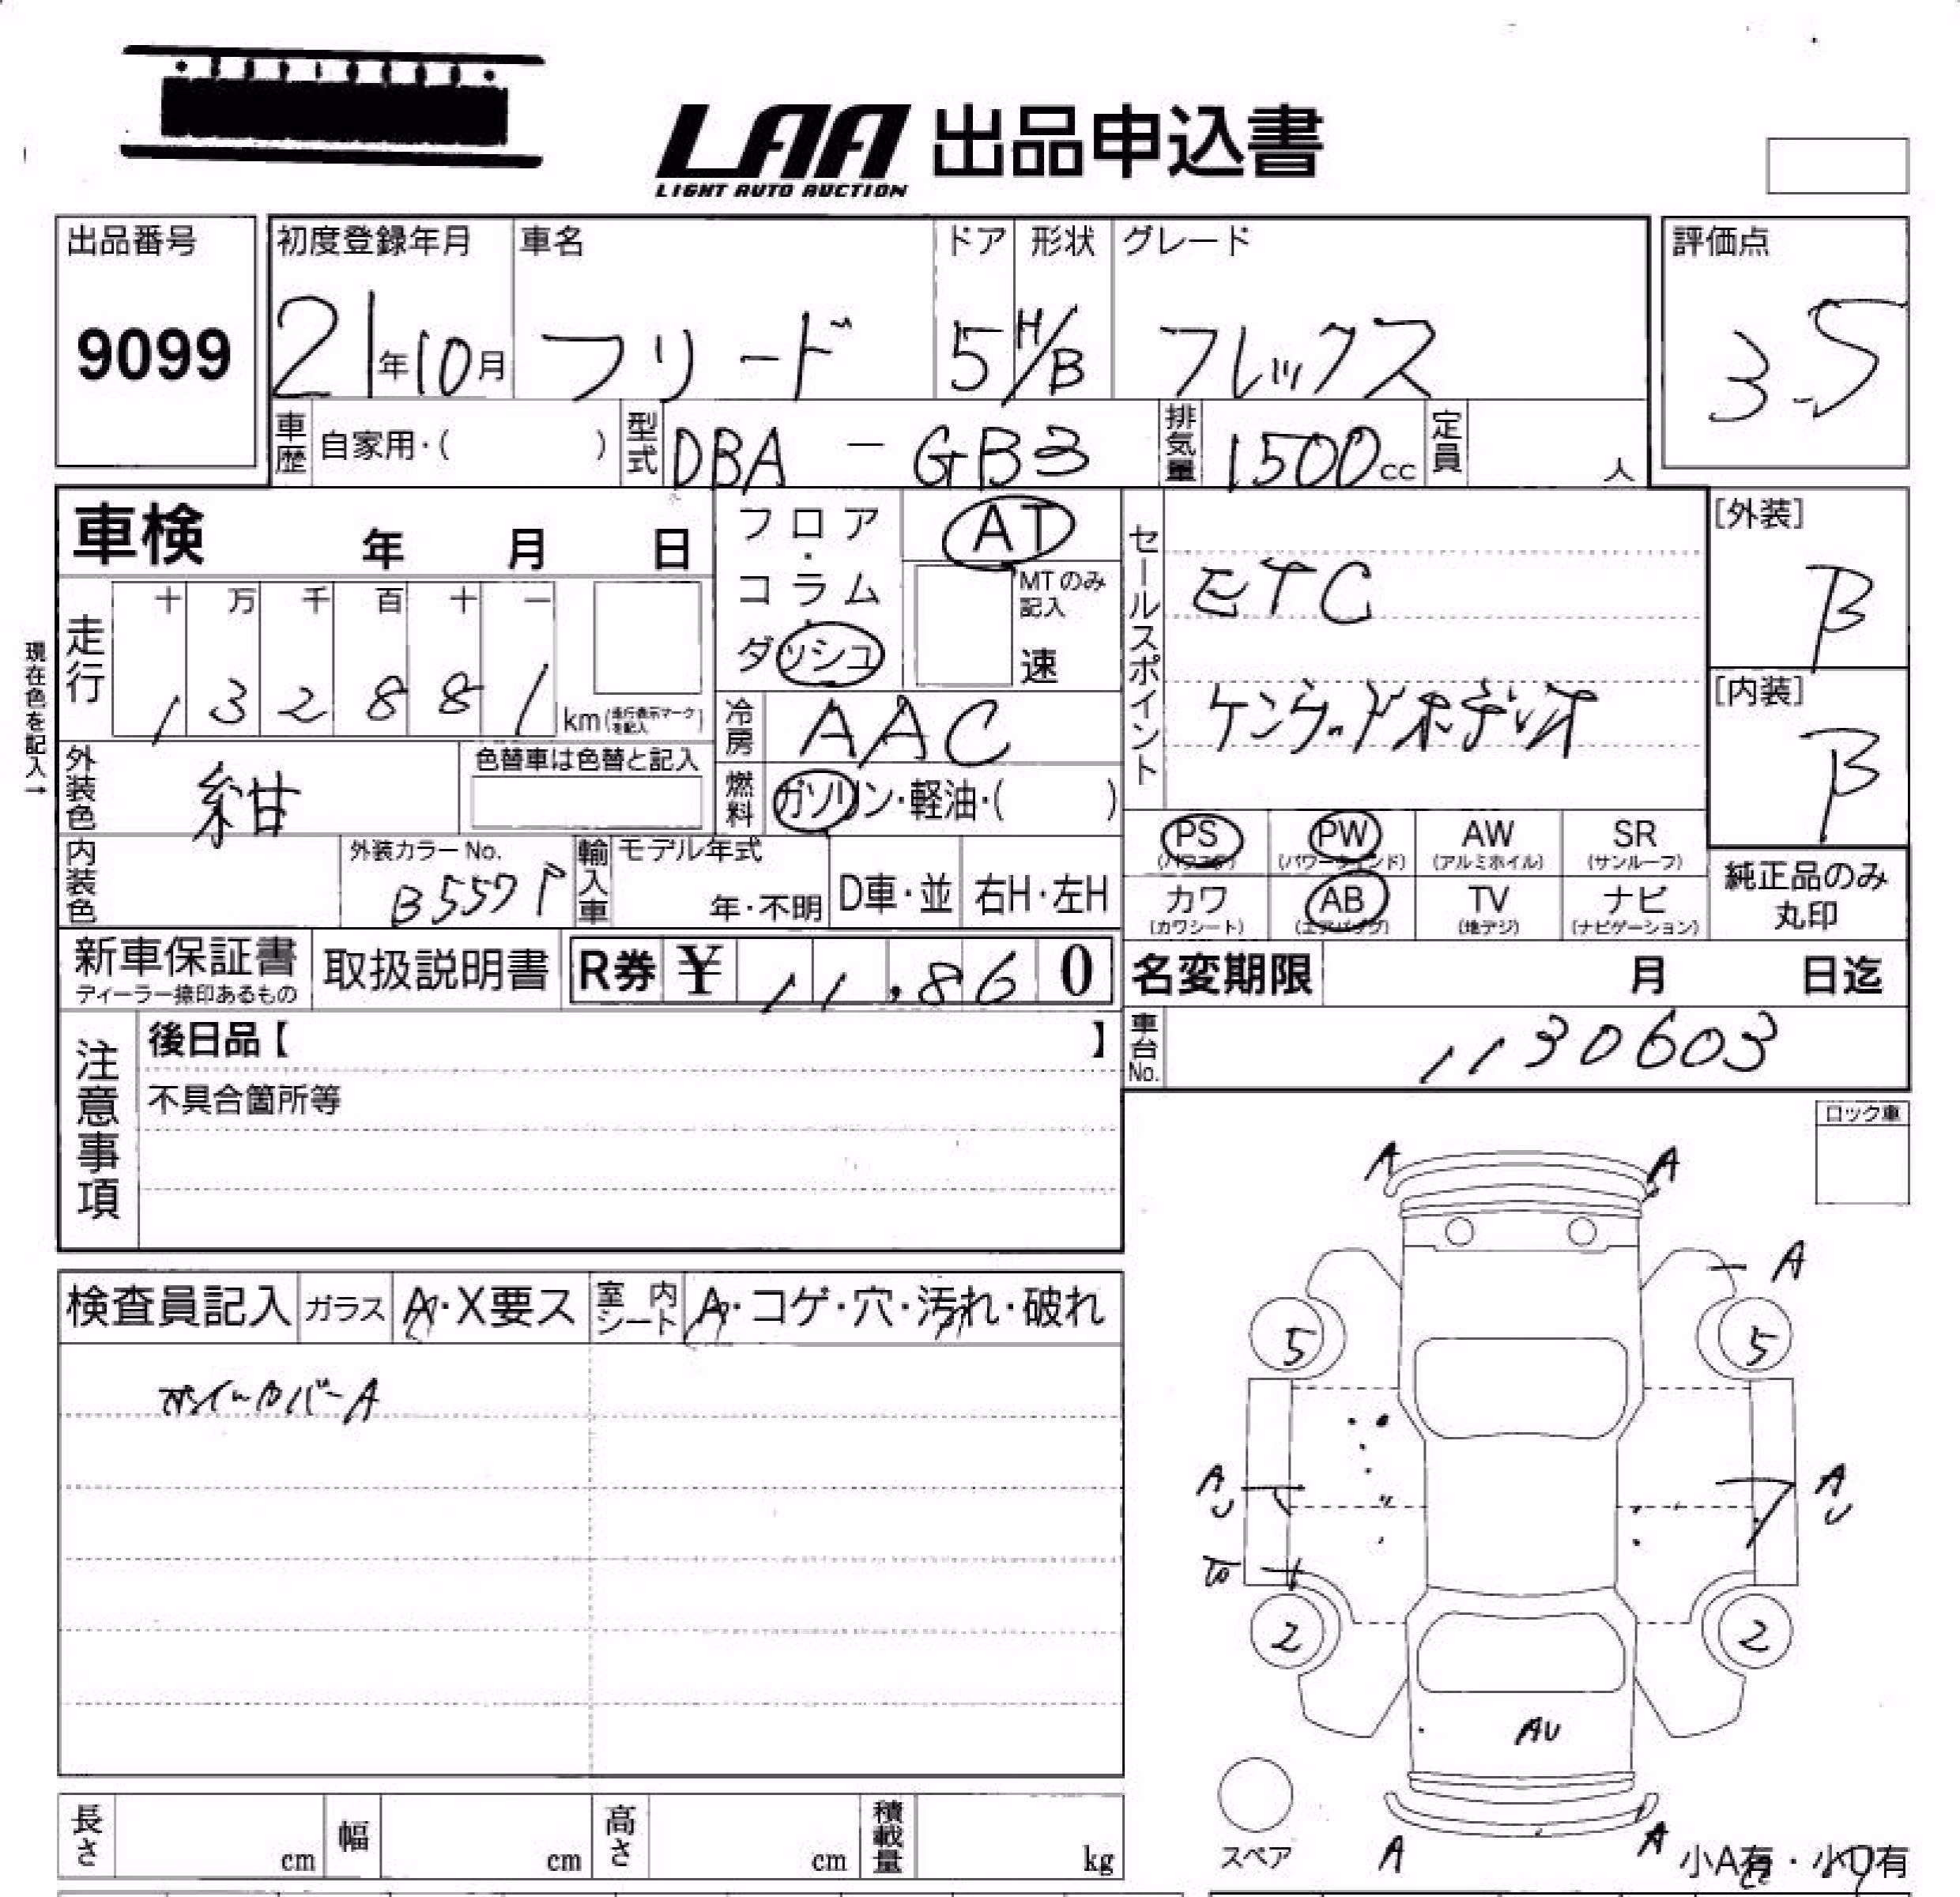 LAA 出品申込書
LIGHT AUTO AUCTION
出品番号 初度登録年月 車名 ドア 形状 グレード 評価点
9099 21年10月 フリード 5 H/B フレックス 3.5
車歴 自家用・( ) 型式 DBA - GB3 排気量 1500cc 定員 人
車検 年 月 日
フロア・コラム・ダッシュ
AT
MTのみ記入
速
セールスポイント
ETC
ケンウッドオーディオ
[外装]
B
[内装]
B
現在色を記入→
走行 十 万 千 百 十 一
1 3 2 8 8 1 km(走行表示マークを記入)
冷房 AAC
外装色 紺 色替車は色替と記入
燃料 ガソリン・軽油・( )
PS AW SR PW
(パワステ) (パワーウインド) (アルミホイル) (サンルーフ)
内装色 外装カラーNo. B557P 輸入車 モデル年式 年・不明 D車・並 右H・左H
カワ AB TV ナビ
(カワシート) (エアバッグ) (地デジ) (ナビゲーション)
純正品のみ丸印
新車保証書 取扱説明書 R券 ¥ 11,860
ディーラー捺印あるもの
名変期限 月 日迄
車台No. 1130603
注意事項
後日品【 】
不具合箇所等
ロック車
検査員記入 ガラス A・X要ス 室内シート A・コゲ・穴・汚れ・破れ
ホイールカバーA
A A
A
5 5
AU AU
2 2
AU
スペア A A 小A有・小U有
長さ cm 幅 cm 高さ cm 積載量 kg